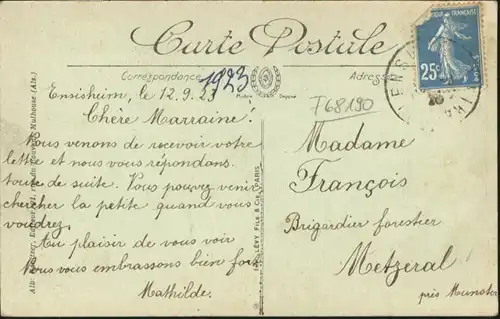 Carte Postale
Correspondance
Adresse
1923
F68190
25c
Ensisheim, le 12.9.23
Chère Marraine!
Nous venons de recevoir votre
lettre et nous vous répondons
toute de suite. Vous pouvez venir
chercher la petite quand vous
voudrez.
Au plaisir de vous voir
Nous vous embrassons bien fort
Mathilde.
Madame
François
Brigardier forestier
Metzeral
près Munster
LÉVY FILS & Cie, PARIS
Mulhouse (Als.)